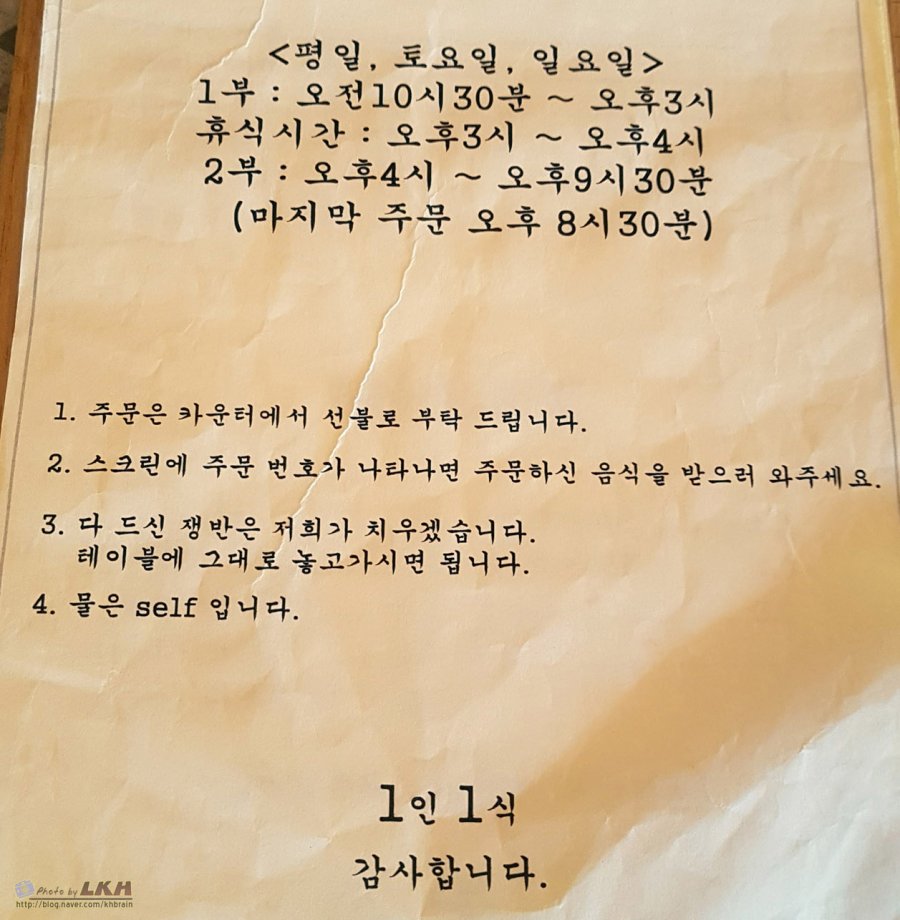 <평일, 토요일, 일요일>
1부 : 오전10시30분 ~ 오후3시
휴식시간 : 오후3시 ~ 오후4시
2부 : 오후4시 ~ 오후9시30분
(마지막 주문 오후 8시30분)
1. 주문은 카운터에서 선불로 부탁 드립니다.
2. 스크린에 주문 번호가 나타나면 주문하신 음식을 받으러 와주세요.
3. 다 드신 쟁반은 저희가 치우겠습니다.
테이블에 그대로 놓고가시면 됩니다.
4. 물은 self 입니다.
1인 1식
감사합니다.
Photo by LKH
http://blog.naver.com/khbrain